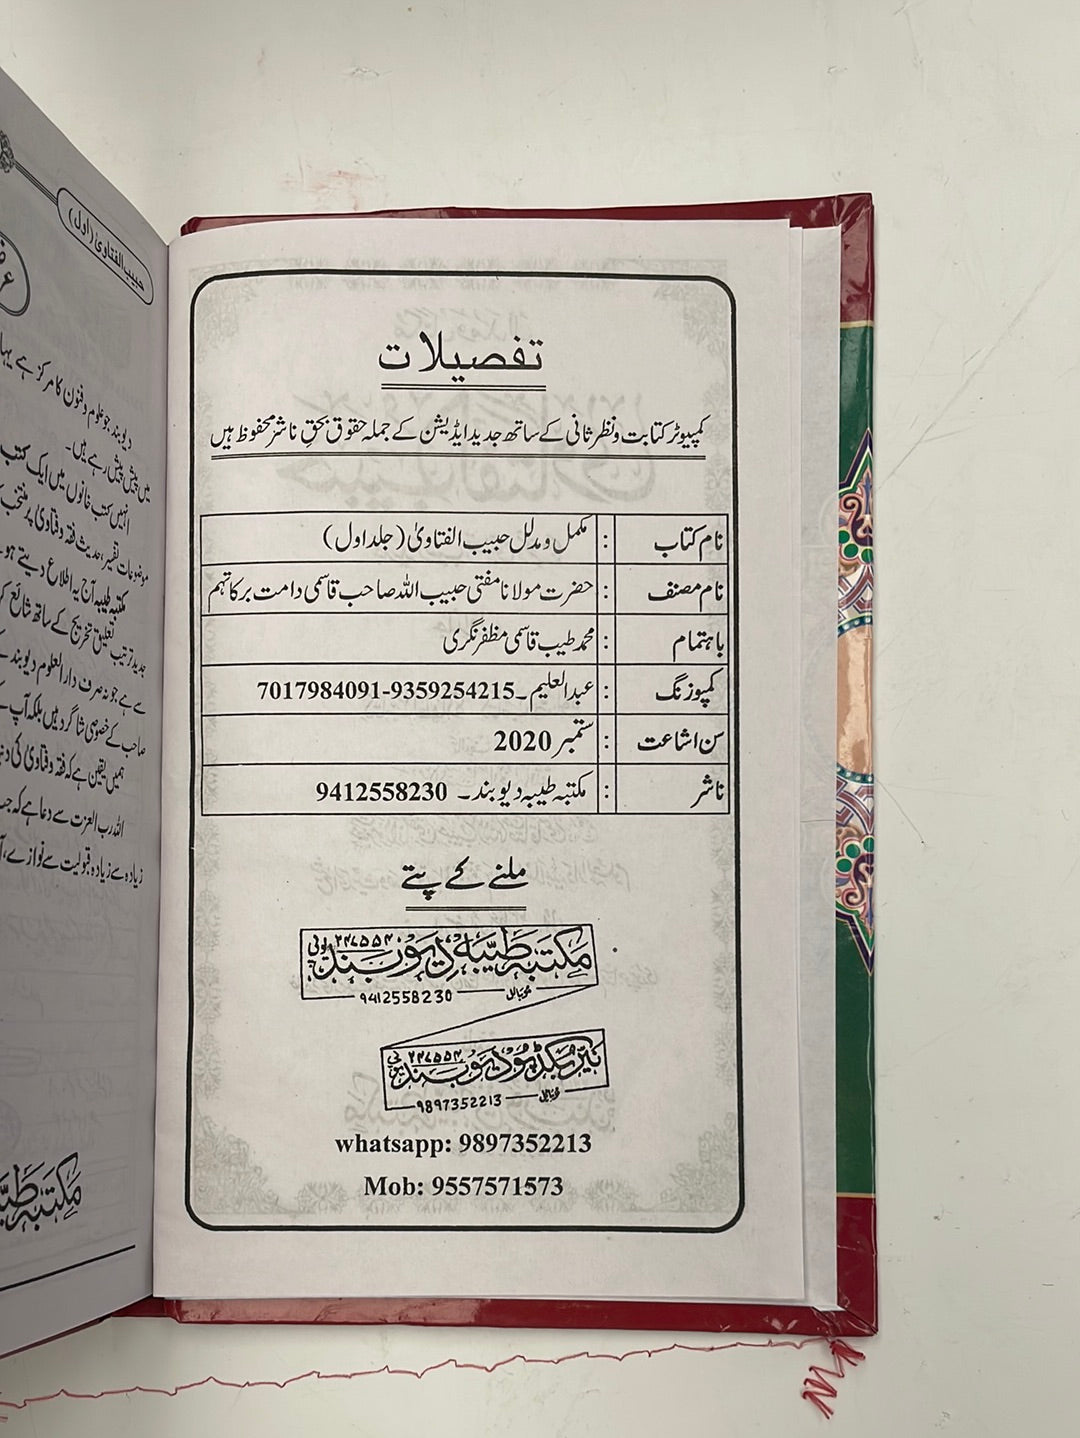 تفصیلات
کمپیوٹر کتابت و نظر ثانی کے ساتھ جدید ایڈیشن کے جملہ حقوق بحق ناشر محفوظ ہیں
نام کتاب : مکمل و مدلل حبیب الفتاویٰ (جلد اول)
نام مصنف : حضرت مولانا مفتی حبیب اللہ صاحب قاسمی دامت برکاتہم
باہتمام : محمد طیب قاسمی مظفر نگری
کمپوزنگ : عبدالعلیم۔ 9359254215-7017984091
سن اشاعت : ستمبر 2020
ناشر : مکتبہ طیبہ دیوبند۔ 9412558230
ملنے کے پتے
مکتبہ طیبہ دیوبند ۲۴۷۵۵۴ یوپی
موبائل 9412558230
نیر بکڈپو دیوبند ۲۴۷۵۵۴ یوپی
موبائل 9897352213
whatsapp: 9897352213
Mob: 9557571573
حبیب الفتاویٰ (اول)
دیوبند جو علوم و فنون کا مرکز ہے
میں پیش پیش رہے ہیں۔
انہیں کتب خانوں میں ایک کتب
موضوعات تفسیر، حدیث فقہ و فتاویٰ پر منتخب
مکتبہ طیبہ آج یہ اطلاع دیتے ہو
جدید ترتیب تعلیق تخریج کے ساتھ شائع
سے ہے جو نہ صرف دارالعلوم دیوبند کے
صاحب کے خصوصی شاگرد ہیں بلکہ آپ
ہمیں یقین ہے کہ فقہ و فتاویٰ کی
اللہ رب العزت سے دعا ہے کہ
زیادہ سے زیادہ قبولیت سے نوازے،
مکتبہ